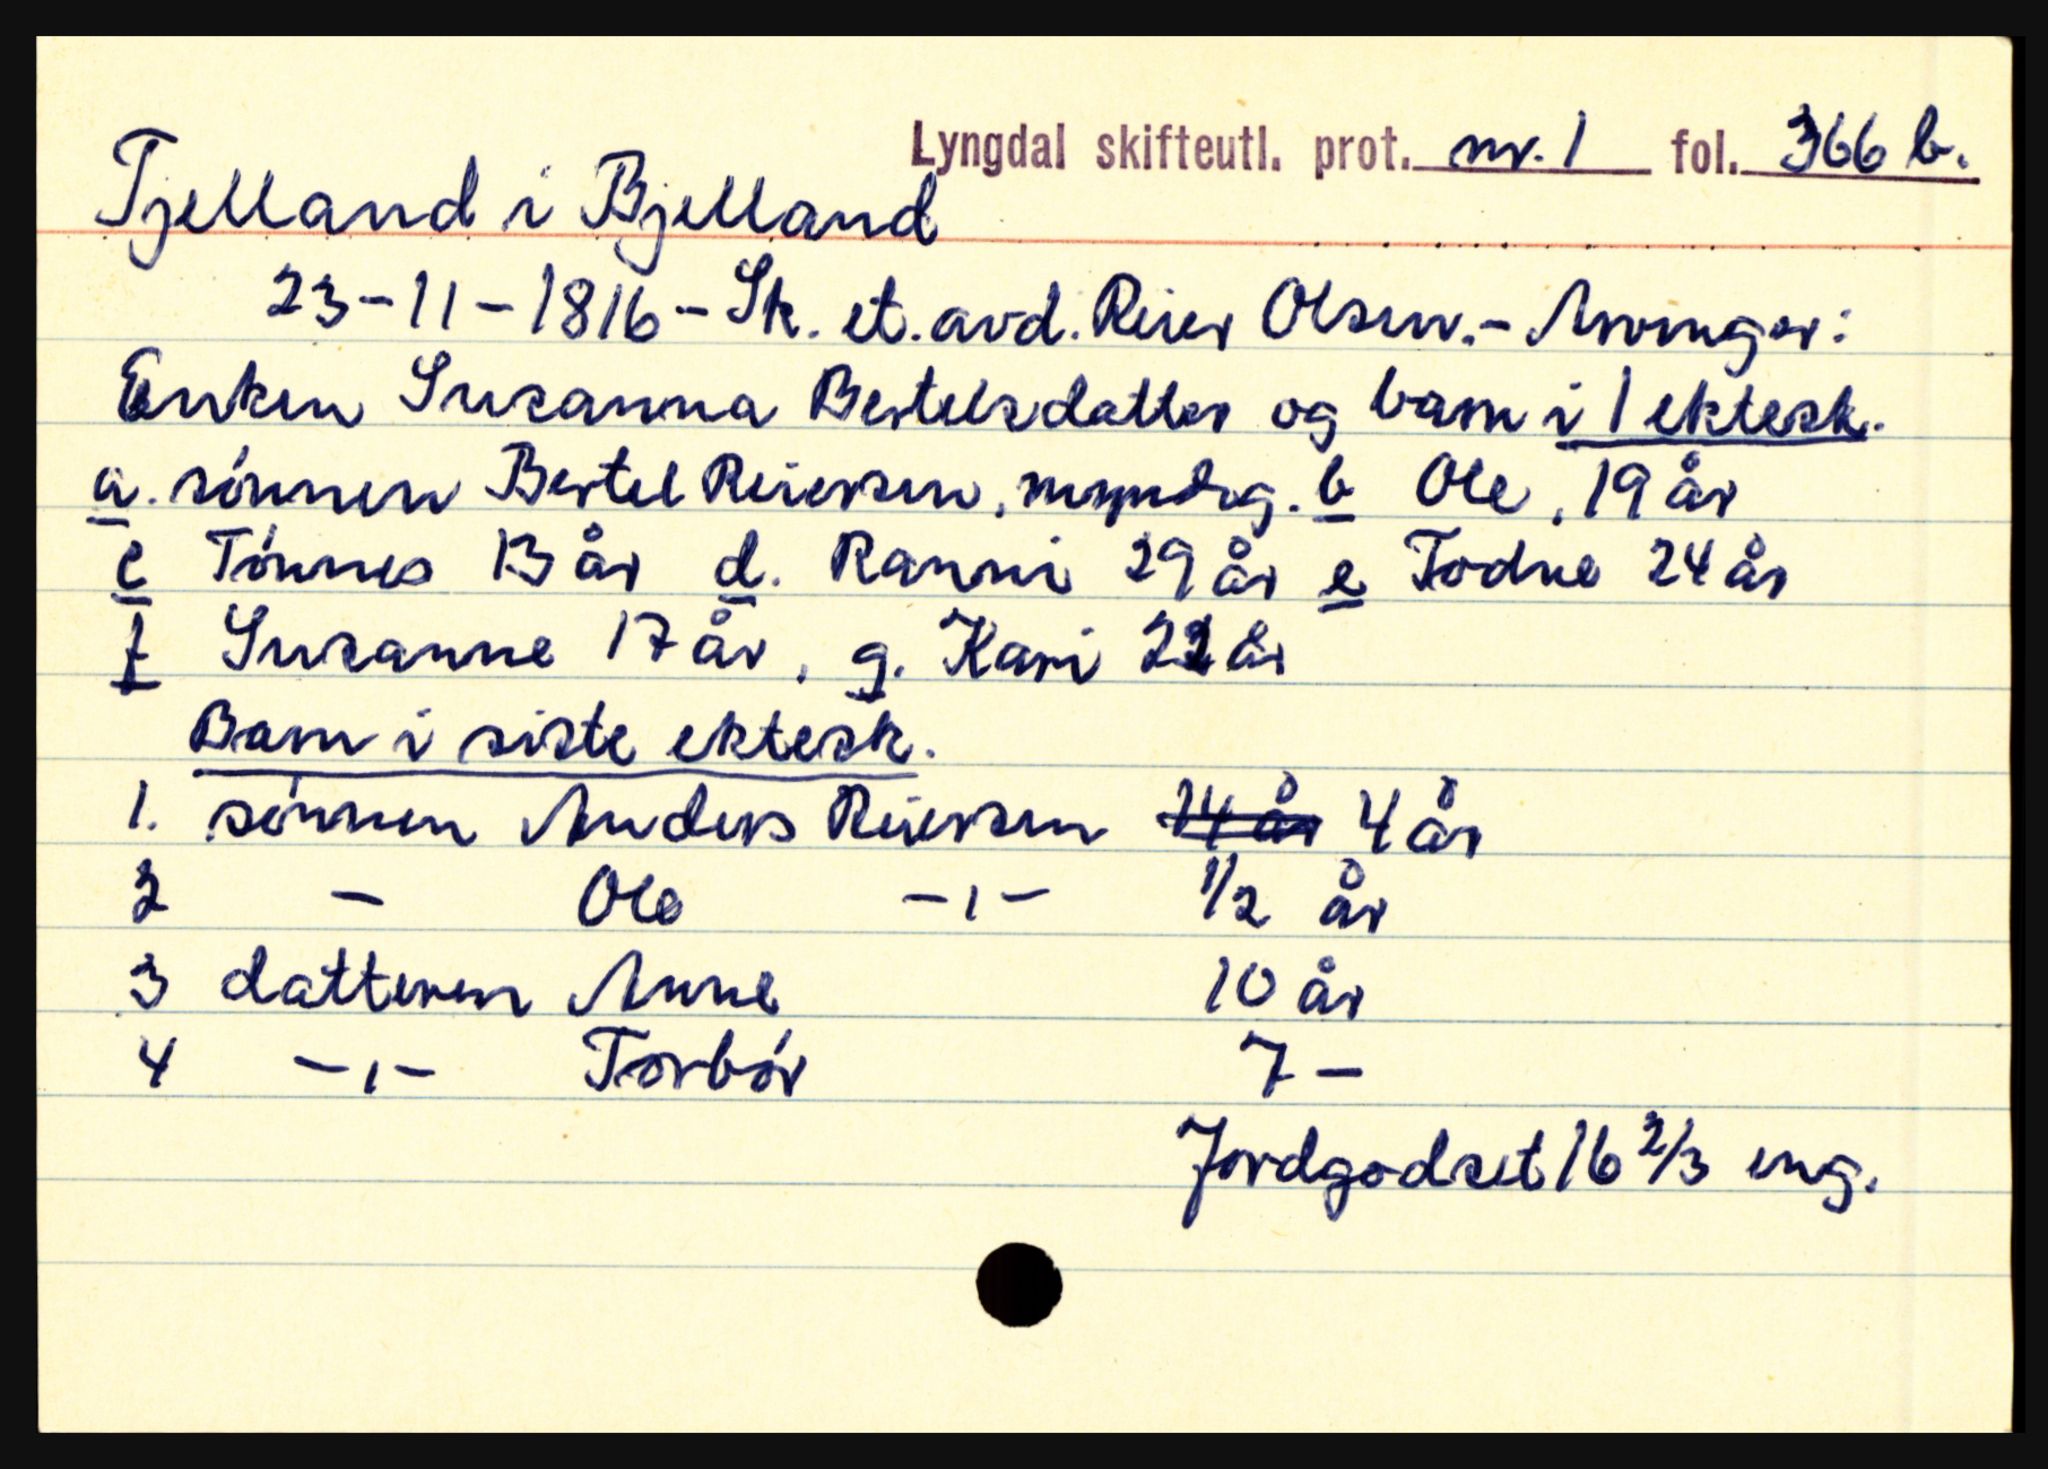 Lyngdal skifteutl. prot. nr. 1 fol. 366 b.
Tjelland i Bjelland
23-11-1816 - Sk. et. avd. Reier Olsen. - Arvinger:
Enken Susanna Bertelsdatter og barn i 1 ektesk.
a. sønnen Bertel Reiersen, myndig. b Ole, 19 år
c Tønnes 13 år d. Ranni 29 år e Todne 24 år
f Susanne 17 år, g. Kari 22 år
Barn i siste ektesk.
1. sønnen Anders Reiersen 14 år 4 år
2 - Ole -ı- 1/2 år
3 datteren Anne 10 år
4 -ı- Torbør 7 -
Jordgodset 16 2/3 eng.